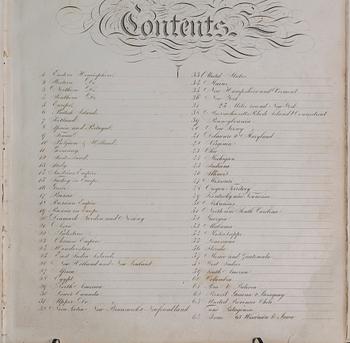 Contents.
1 Eastern Hemisphere
2 Western Do.
3 Northern Do.
4 Southern Do.
5 Europe
6 British Islands
7 Scotland
8 Spain and Portugal
9 France
10 Belgium & Holland
11 Germany
12 Switzerland
13 Italy
14 Austrian Empire
15 Turkey in Europe
16 Greece
17 Russia
18 Russian Empire
19 Russia in Europe
20 Denmark Sweden and Norway
21 Asia
22 Palestine
23 Chinese Empire
24 Hindoostan
25 East India Islands
26 New Holland and New Zealand
27 Africa
28 Egypt
29 North America
30 Lower Canada
31 Upper Do.
32 Nova Scotia New Brunswick Newfoundland
33 United States
34 Maine
35 New Hampshire and Vermont
36 New York
37 25 Miles round New York
38 Massachusetts Rhode Island Connecticut
39 Pennsylvania
40 New Jersey
41 Delaware & Maryland
42 Virginia
43 Ohio
44 Michigan
45 Indiana
46 Illinois
47 Missouri
48 Oregon Territory
49 Kentucky and Tennessee
50 Arkansas
51 North and South Carolina
52 Georgia
53 Alabama
54 Mississippi
55 Louisiana
56 Florida
57 Mexico and Guatemala
58 West Indies
59 South America
60 Colombia
61 Peru & Bolivia
62 Brazil Guiana & Paraguay
63 United Provinces Chili
and Patagonia
64 Texas 65 Wisconsin & Iowa